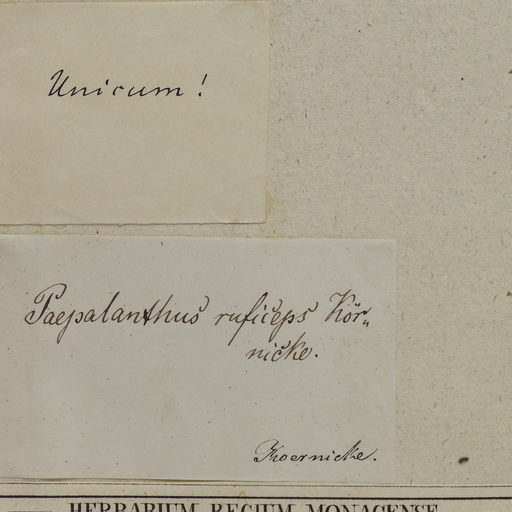 Unicum!
Paepalanthus ruficeps Kör-
nicke.
Koernicke.
HERBARIUM REGIUM MONACENSE